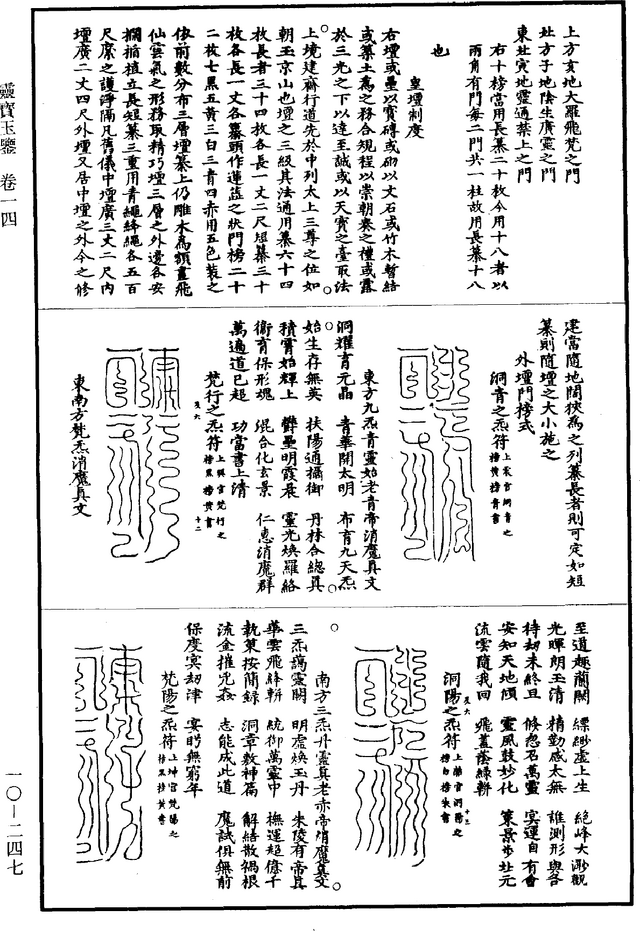 上方亥地大羅飛梵之門
北方子地陰生廣靈之門
東北寅地靈通禁上之門
右十榜當用長纂二十枚今用十八者以
兩角有門每二門共一柱故用長纂十八
也
皇壇制度
右壇或壘以寶磚或砌以文石或竹木暫結
或築土為之務合規程以崇朝奏之禮或露
於三光之下以達至誠或以天寶之臺取法
上境建齋行道先於中列太上三尊之位如
朝玉京山也壇之三級其法通用纂六十四
枚長者三十四枚各長一丈二尺短纂三十
枚各長一丈各纂頭作蓮蕋之狀門榜二十
二枚七黑五黃三白三青四赤用五色裝之
依前數分布三層壇纂上仍雕木為額畫飛
仙雲氣之形務取精巧壇三層之外邊各安
欄楯植立長短纂三重用青繩絳繩各五百
尺縻之護淨隔凡舊儀中壇廣三丈二尺內
壇廣二丈四尺外壇又居中壇之外今之修
建當隨地闊狹為之列纂長者則可定如短
纂則隨壇之大小施之
外壇門榜式
洞青之炁符
東方九炁青靈始老青帝消魔真文
洞耀育元晶 青華開太明 布育九天炁
始生存無英 扶陽通攝御 丹林合總真
積霄始輝上 鬱壘明霞晨 靈光煥羅絡
衛育保形魂 混合化玄景 仁惠消魔群
萬遍道已超 功當書上清
梵行之炁符
東南方梵炁消魔真文
至道趣蘭闕 縹緲虛上生 絕峰大渺觀
光暉朗玉清 精勤感太無 誰測形與名
持劫未終且 倏忽名萬靈 冥運自有會
安知天地傾 靈風鼓妙化 策景步北元
流雲隨我回 飛蓋蔭綠軿
洞陽之炁符
南方三炁丹靈真老赤帝消魔真文
三炁藹靈閣 明虛煥玉丹 朱陵有帝真
華雲飛絳軿 統御萬靈中 撫運超億千
執籙按簡錄 洞章敷神篇 解結散禍根
流金摧兇姦 志能成此道 魔試俱無前
保度冥劫津 冥眄無窮年
梵陽之炁符
靈寶玉鑒 卷一四
一〇—二四七